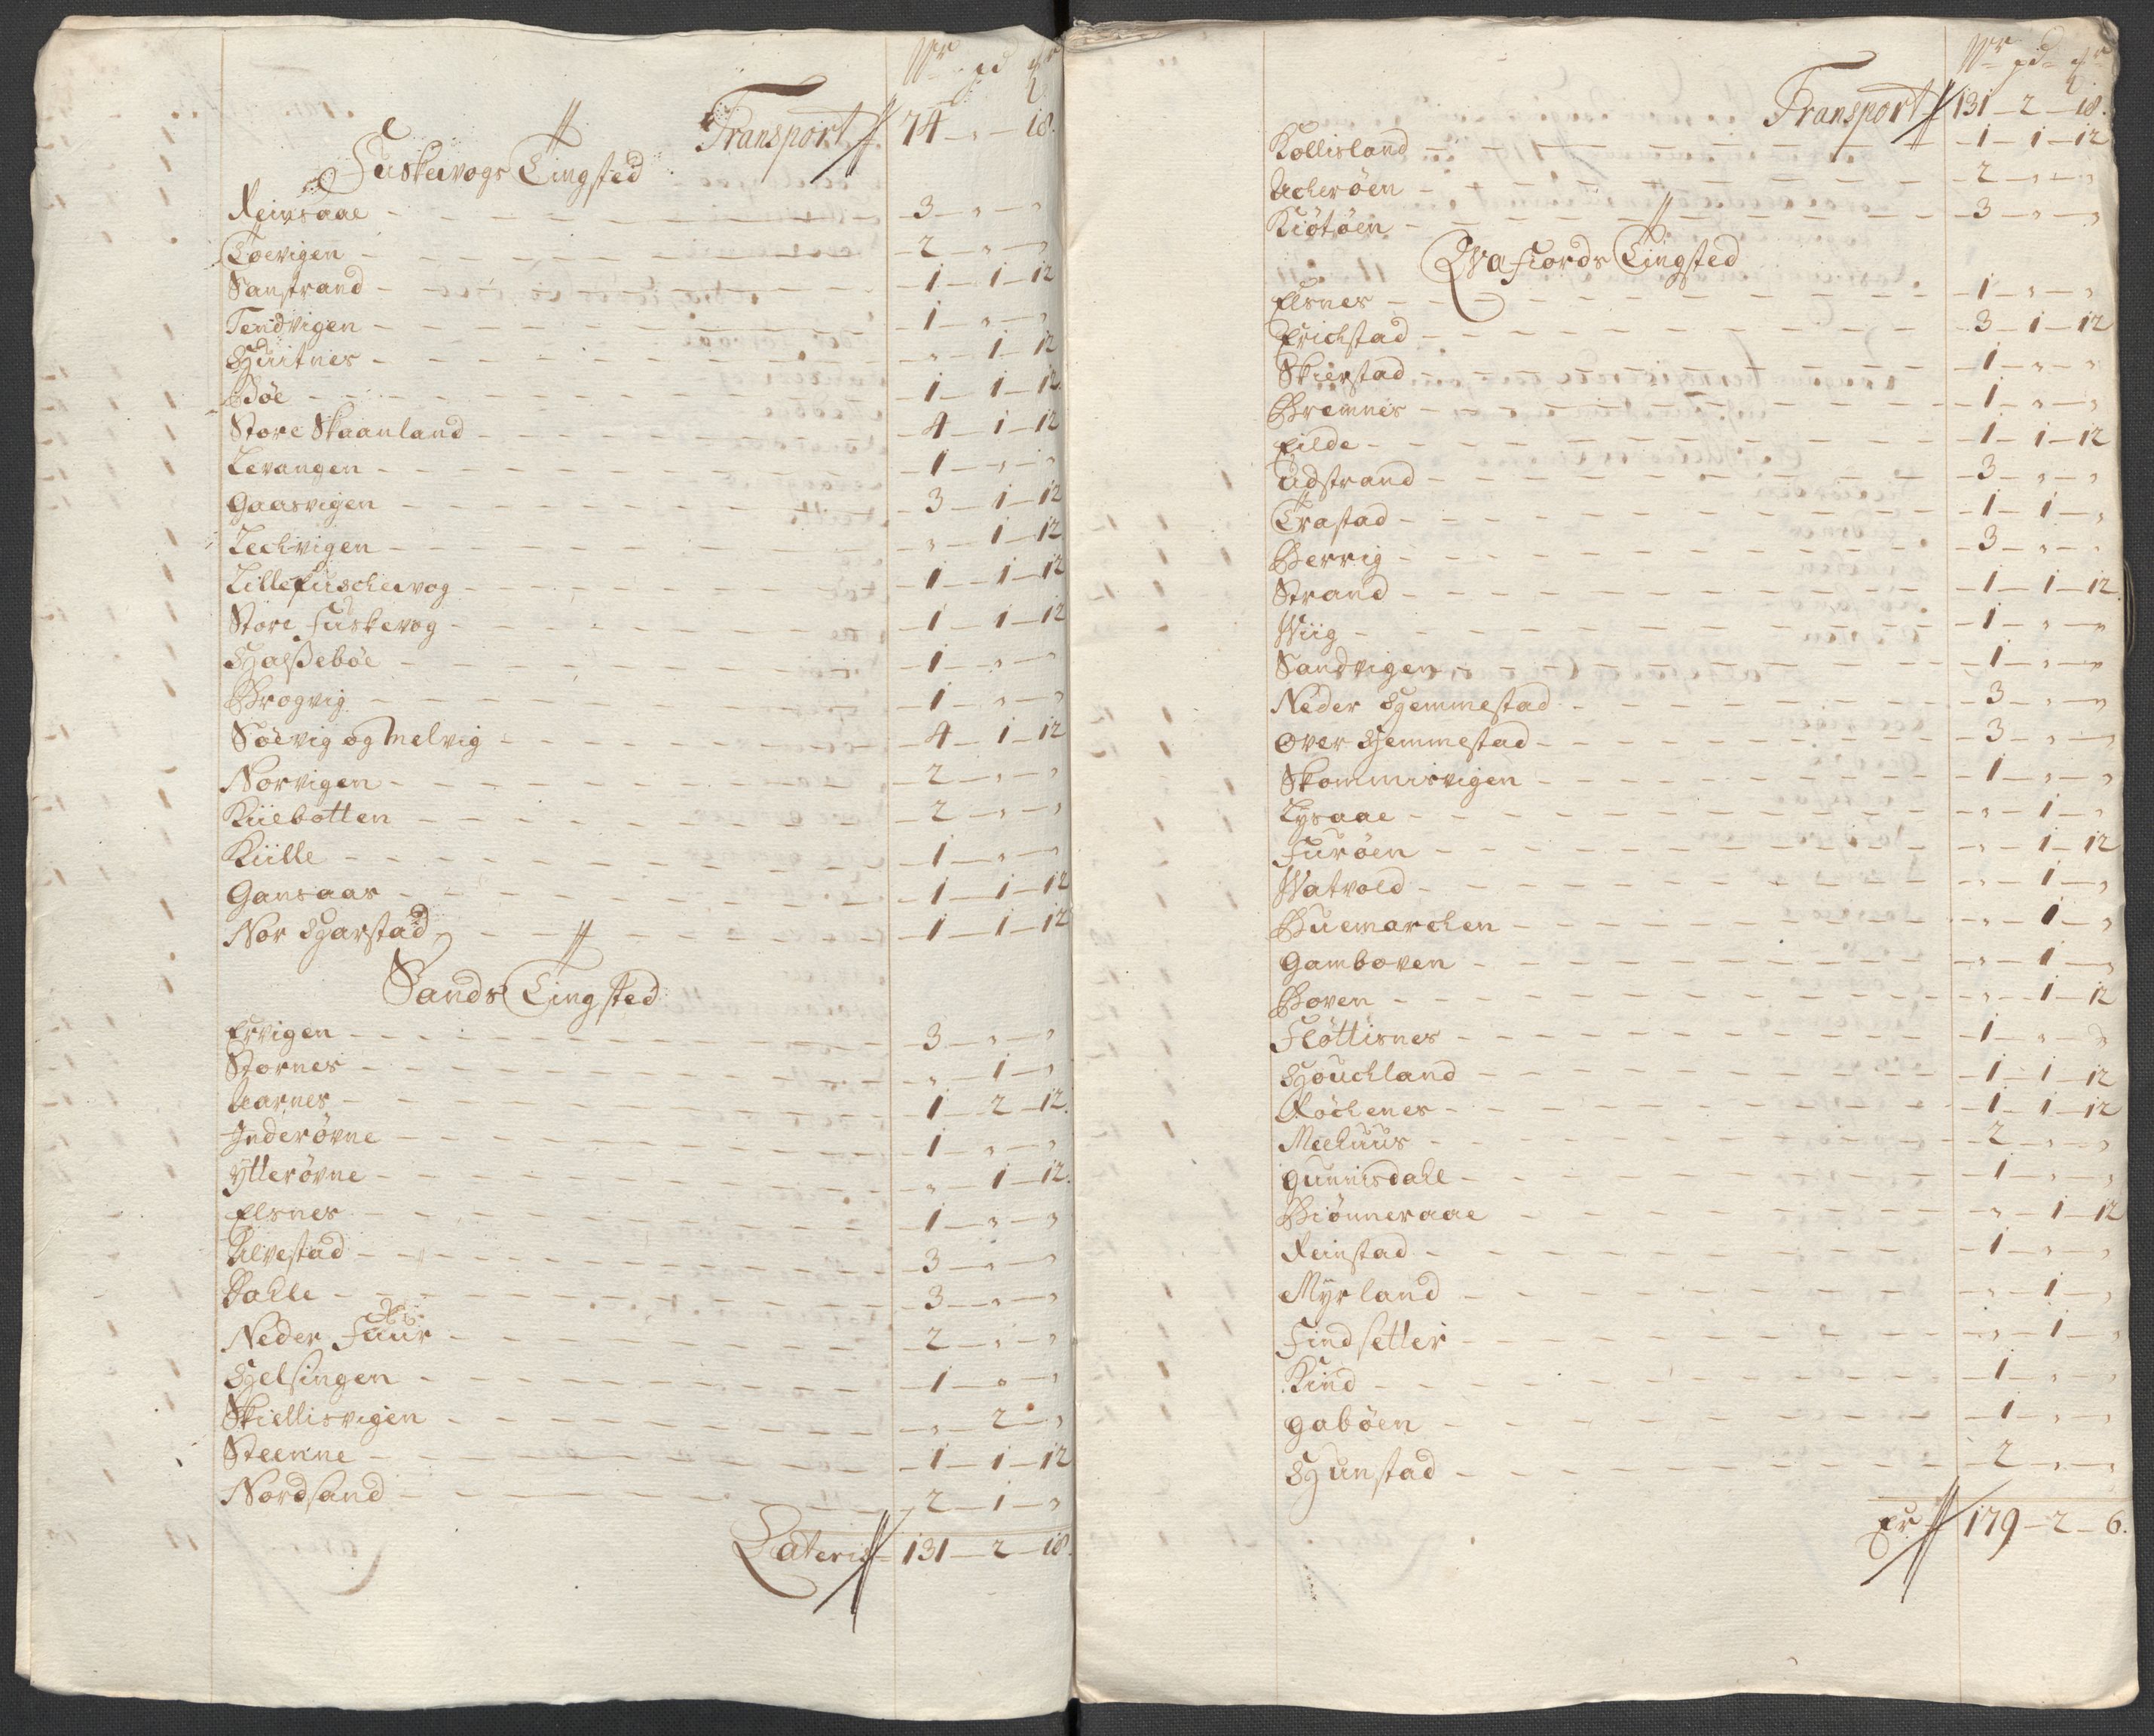 Wr pd ℔r
Transport 74 – „ – 18.
Fuskevogs Tingsted
Reinsaae – 3 – „ – „
Toevigen – 2 – „ – „
Sanstrand – 1 – 1 – 12
Tendvigen – 1 – „ – „
Huitnes – „ – 1 – 12
Bøe – 1 – 1 – 12
Store Skaanland – 4 – 1 – 12
Levangen – 1 – „ – „
Gaasvigen – 3 – 1 – 12
Lechvigen – „ – 1 – 12
Lille fuschevog – 1 – 1 – 12
Store Fuskevog – 1 – 1 – 12
Halssebøe – 1 – „ – „
Brogvig – 1 – „ – „
Søevig og Melvig – 4 – 1 – 12
Norvigen – 2 – „ – „
Kiiebotten – 2 – „ – „
Kiille – 1 – „ – „
Gansaas – 1 – 1 – 12
Nor Harstad – 1 – 1 – 12
Sands Tingsted
Ervigen – 3 – „ – „
Stornes – „ – 1 – „
Aarnes – 1 – 2 – 12.
Inderøvne – 1 – „ – „
Ytterøvne – „ – 1 – 12.
Elsnes – 1 – „ – „
Alvestad – 3 – „ – „
Dahle – 3 – „ – „
Neder Fuur – 2 – „ – „
Helsingen – 1 – „ – „
Skiellisvigen – „ – 2 – „
Steenne – 1 – 1 – 12
Nordsand – 2 – 1 – „
Lateris 131 – 2 – 18.
Wr pd ℔r
Transport 131 – 2 – 18.
Kollisland – 1 – 1 – 12
Acherøen – 2 – „ – „
Kiøtøen – 3 – „ – „
Qvafiords Tingsted
Elsnes – 1 – „ – „
Erichstad – 3 – 1 – 12
Skierstad – 1 – „ – „
Bremnes – 1 – „ – „
Eilde – 1 – 1 – 12
Udstrand – 3 – „ – „
Trastad – 1 – 1 – „
Berrig – 3 – „ – „
Strand – 1 – 1 – 12.
Wiig – 1 – „ – „
Sandvigen – 1 – „ – „
Neder Hemmestad – 3 – „ – „
Over Hemmestad – 3 – „ – „
Skommisvigen – 1 – „ – „
Lysaae – „ – 1 – „
Furøen – „ – 1 – 12
Watvold – „ – 1 – „
Buemarchen – „ – 1 – „
Gamboven – „ – 1 – „
Boven – „ – 1 – 12
Fløttisnes – 1 – „ – „
Houchland – 1 – 1 – 12
Røchenes – 1 – 1 – 12
Meehuus – 2 – „ – „
Gunnisdahl – 1 – „ – „
Biønneraae – „ – 1 – 12
Reinstad – 1 – „ – „
Myrland – „ – 1 – „
Findsetter – „ – 1 – „
Kind – 1 – „ – „
Gabøen – 1 – „ – „
Hunstad – 2 – „ – „
Er 179 – 2 – 6.